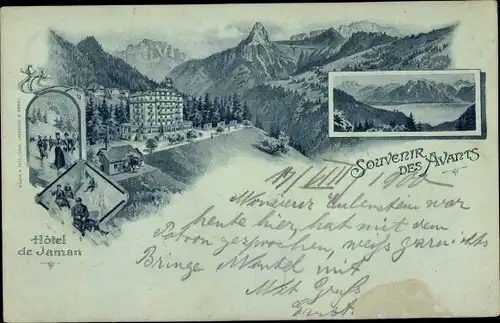 SOUVENIR
DES AVANTS
Hôtel
de Jaman
1900
Monsieur Eulenstein war
heute hier, hat mit dem
Patron gesprochen, weiß gar nichts
Bringe Mantel mit
Mkt Gruß
Ernst.